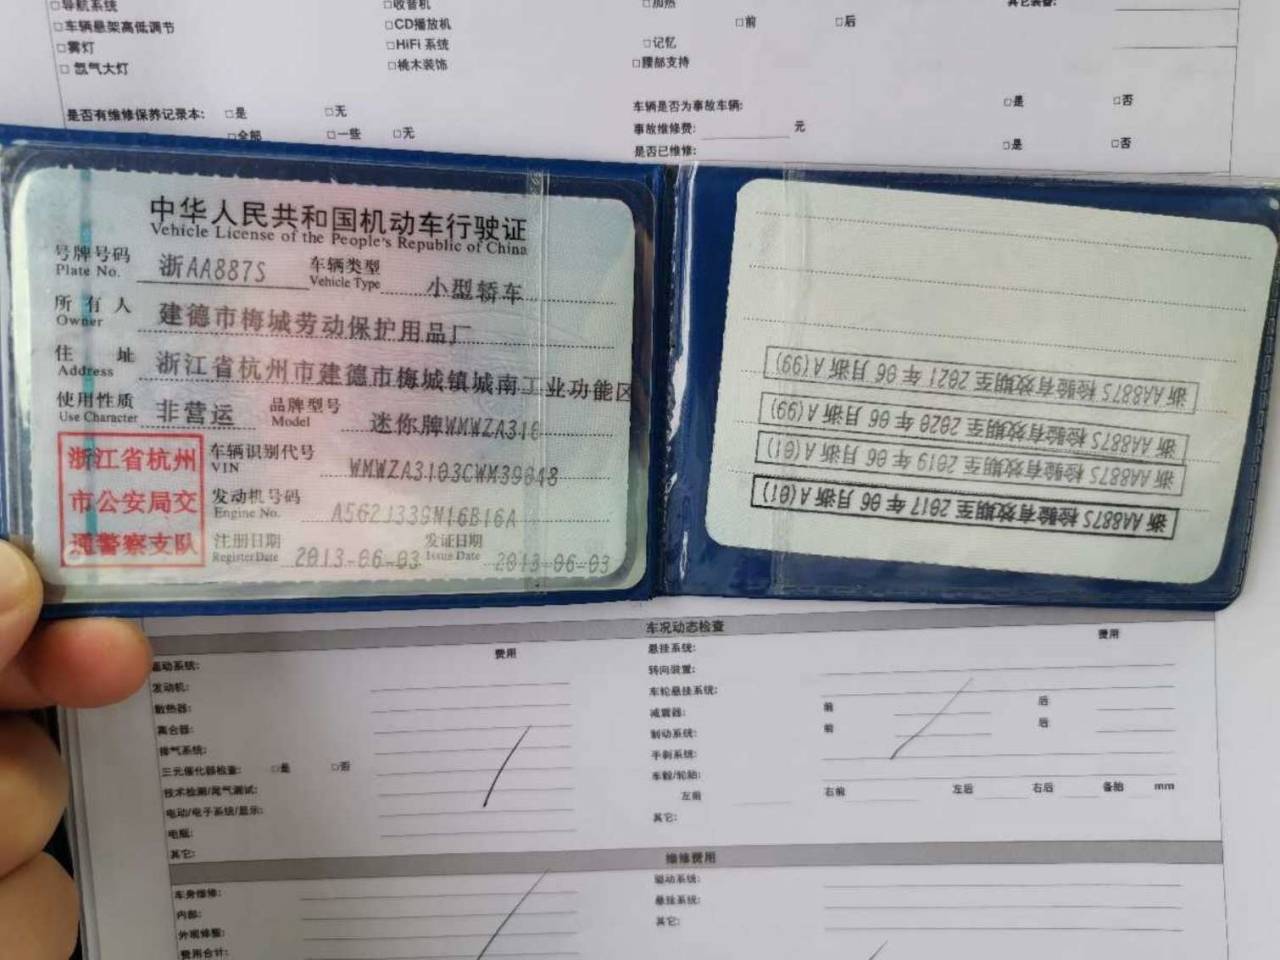 □导航系统 □收音机 □加热 其它装备:
□车辆悬架高低调节 □CD播放机 □前 □后
□雾灯 □HiFi 系统 □记忆
□氙气大灯 □桃木装饰 □腰部支持
是否有维修保养记录本: □是 □无 车辆是否为事故车辆: □是 □否
□全部 □一些 □无 事故维修费: 元
是否已维修: □是 □否
中华人民共和国机动车行驶证
Vehicle License of the People's Republic of China
号牌号码 浙AA887S 车辆类型 小型轿车
Plate No. Vehicle Type
所有人 建德市梅城劳动保护用品厂
Owner
住址 浙江省杭州市建德市梅城镇城南工业功能区
Address
使用性质 非营运 品牌型号 迷你牌WMWZA310
Use Character Model
浙江省杭州
市公安局交
通警察支队
车辆识别代号 WMWZA3103CWM39048
VIN
发动机号码 A562J339N16B16A
Engine No.
注册日期 2013-06-03 发证日期 2013-06-03
Register Date Issue Date
浙AA887S 检验有效期至2017年06月浙A(01)
浙AA887S 检验有效期至2019年06月浙A(01)
浙AA887S 检验有效期至2020年06月浙A(99)
浙AA887S 检验有效期至2021年06月浙A(99)
车况动态检查
费用 费用
驱动系统: 悬挂系统:
发动机: 转向装置:
散热器: 车轮悬挂系统:
离合器: 减震器: 前 后
排气系统: 制动系统: 前 后
三元催化器检查: □是 □否 手刹系统:
技术检测/尾气测试: 车毂/轮胎:
电动/电子系统/显示: 左前 右前 左后 右后 备胎 mm
电瓶: 其它:
其它:
维修费用
车身维修: 驱动系统:
内部: 悬挂系统:
外观修整: 其它:
费用合计: